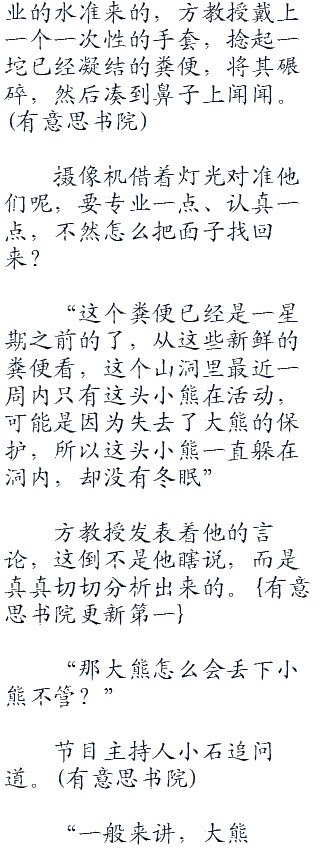 业的水准来的，方教授戴上
一个一次性的手套，捻起一
坨已经凝结的粪便，将其碾
碎，然后凑到鼻子上闻闻。
(有意思书院)
摄像机借着灯光对准他
们呢，要专业一点、认真一
点，不然怎么把面子找回
来？
“这个粪便已经是一星
期之前的了，从这些新鲜的
粪便看，这个山洞里最近一
周内只有这头小熊在活动，
可能是因为失去了大熊的保
护，所以这头小熊一直躲在
洞内，却没有冬眠”
方教授发表着他的言
论，这倒不是他瞎说，而是
真真切切分析出来的。{有意
思书院更新第一}
“那大熊怎么会丢下小
熊不管？”
节目主持人小石追问
道。(有意思书院)
“一般来讲，大熊